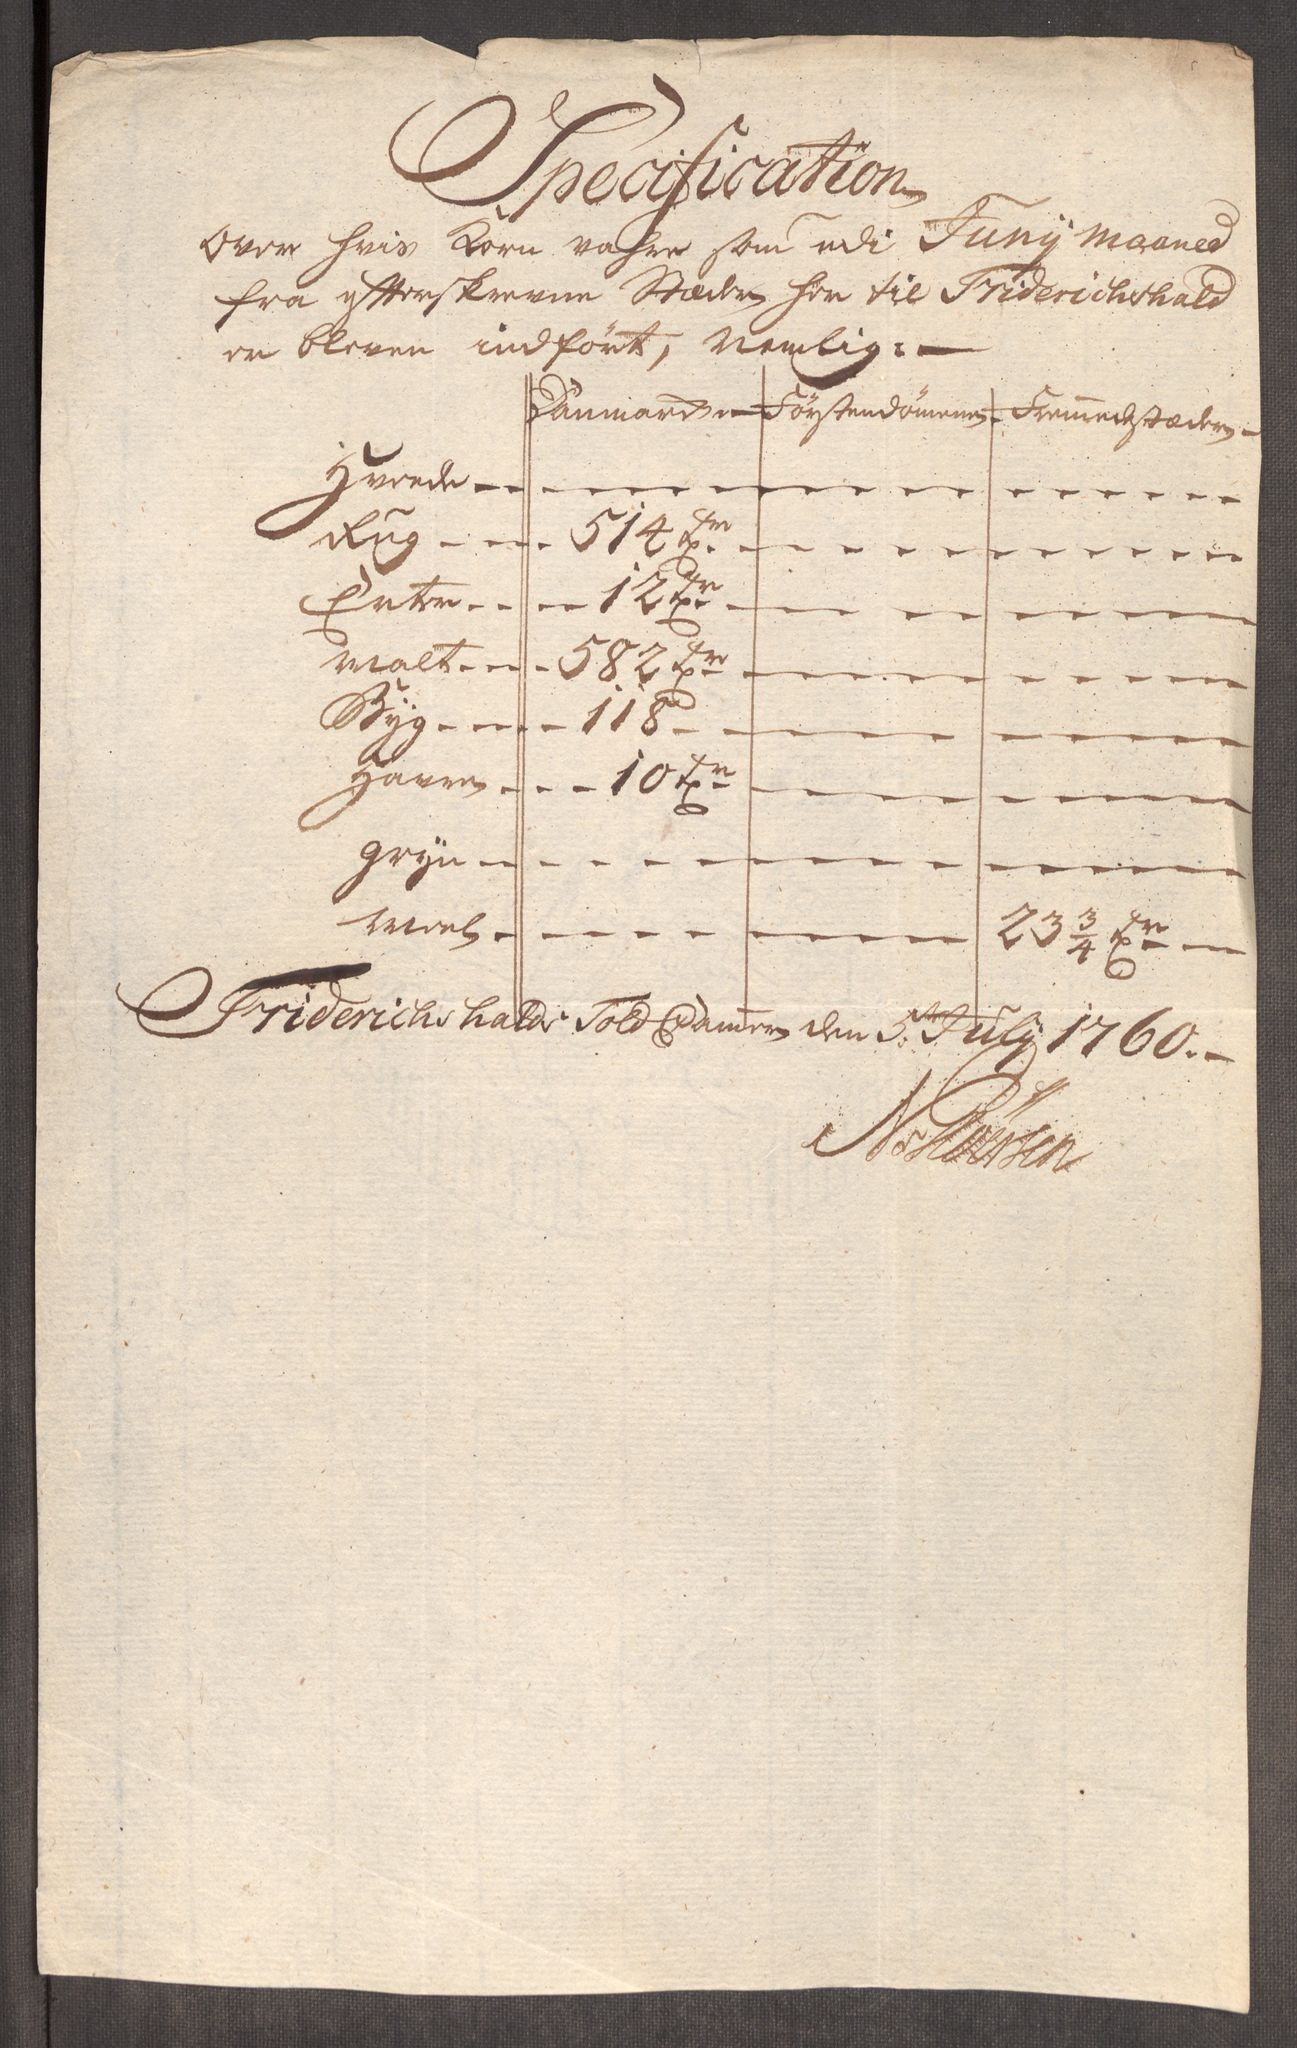 Specification
Over hvis Korn vahre som udi Junÿ Maaned
fra ÿtterskrevne Stæder her til Friderichshald
er bleven indført, Nemlig:
Danmark Førstendømene Fremmedstæder
Hvede
Rug 514 Tr
Erter 12 Tr
Malt 582 Tr
Byg 118
Havre 10 Tr
Grÿn
Meel 23 3/4 Tr
Friderichshalds Told Camer den 5t Julÿ 1760.